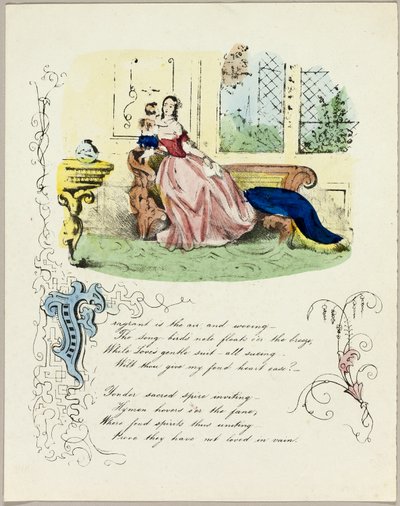 Fragrant is the air and wooing—
The song-birds note floats o'er the breeze,
While Loves gentle suit—all suing—
Wilt thou give my fond heart ease?—
Yonder sacred spire inviting—
Hymen hovers o'er the fane,
Where fond spirits thus uniting—
Prove they have not loved in vain.